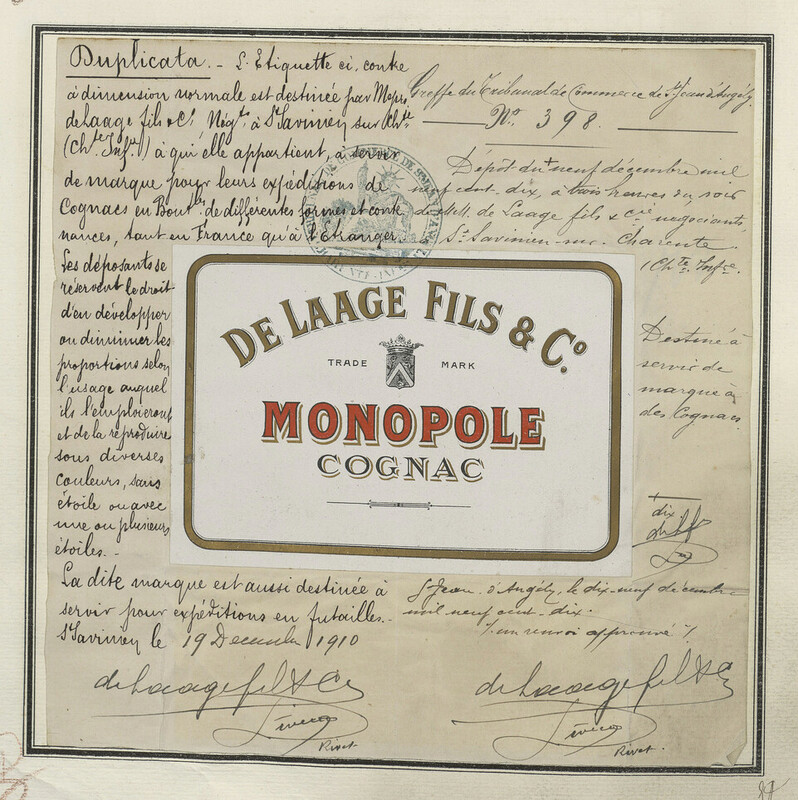 Duplicata. - L'Etiquette ci, contre
à dimension normale est destinée par Messrs
de Laage fils & Cie Négts à St Savinien sur Chte
(Chte Infre) à qui elle appartient, à servir
de marque pour leurs expéditions de
Cognacs en Boutlles de différentes formes et conte
nances, tant en France qu'à l'Etranger.
Les déposants se
réservent le droit
d'en développer
ou diminuer les
proportions selon
l'usage auquel
ils l'emploieront
et de la reproduire
sous diverses
couleurs, sans
étoile ou avec
une ou plusieurs
étoiles. -
La dite marque est aussi destinée à
servir pour expéditions en futailles. -
St Savinien le 19 Decembre 1910
de Laage fils & Cie
Rivet
Greffe du Tribunal de Commerce de St Jean d'Angély
No. 398.
Dépôt du neuf décembre mil
neuf cent-dix, à trois heures du soir
de MM. de Laage fils & Cie négociants
St Savinien-sur-Charente
(Chte Infre.
Destiné à
servir de
marque à
des Cognacs.
+ dix
DE LAAGE FILS & Co.
TRADE MARK
MONOPOLE
COGNAC
St Jean d'Angély, le dix-neuf décembre
mil neuf cent-dix.
/ un renvoi approuvé /
de Laage fils & Cie
Rivet.